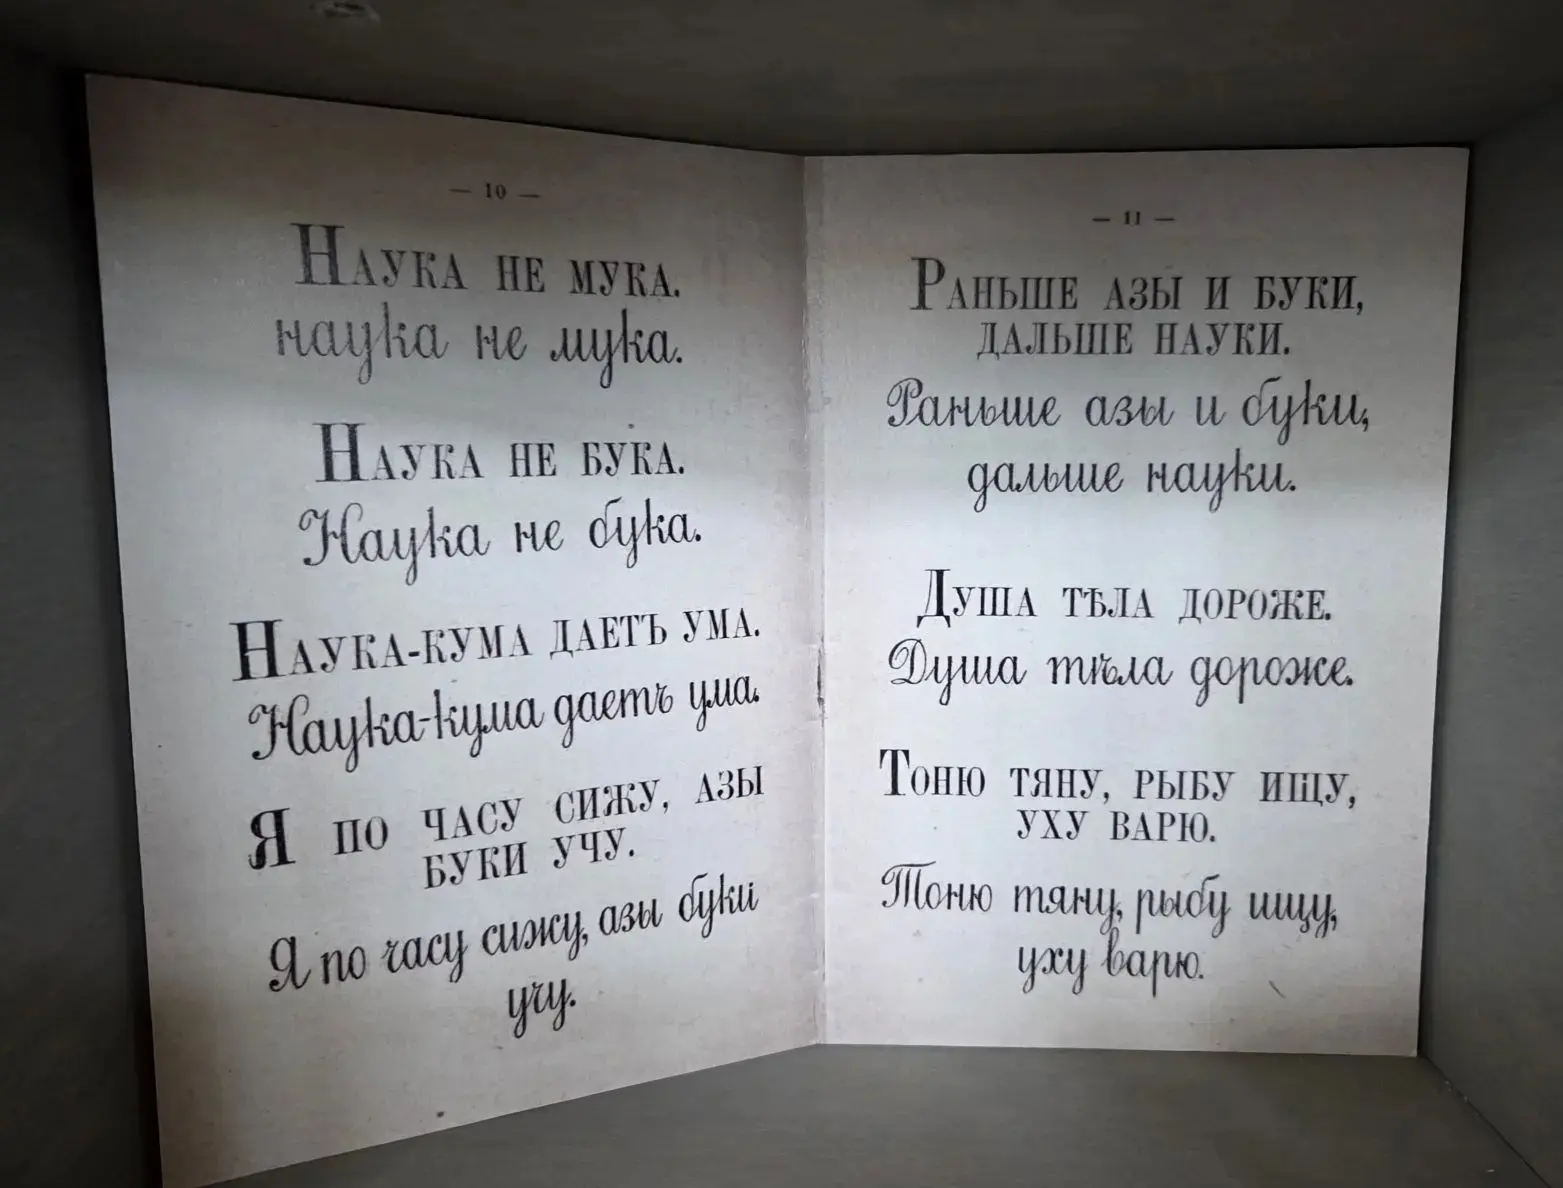 — 10 —
НАУКА НЕ МУКА.
наука не мука.
НАУКА НЕ БУКА.
Наука не бука.
НАУКА-КУМА ДАЕТЪ УМА.
Наука-кума даетъ ума.
Я ПО ЧАСУ СИЖУ, АЗЫ
БУКИ УЧУ.
Я по часу сижу, азы буки
учу.
— 11 —
РАНЬШЕ АЗЫ И БУКИ,
ДАЛЬШЕ НАУКИ.
Раньше азы и буки,
дальше науки.
ДУША ТѢЛА ДОРОЖЕ.
Душа тѣла дороже.
ТОНЮ ТЯНУ, РЫБУ ИЩУ,
УХУ ВАРЮ.
Тоню тяну, рыбу ищу,
уху варю.